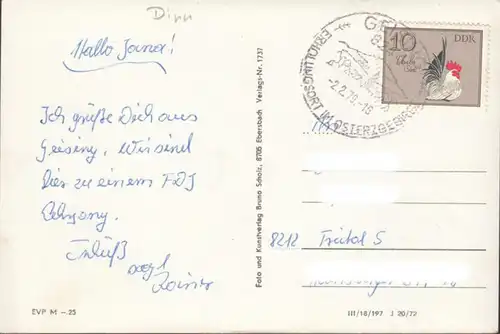 Dirn
Hallo Jana!
Ich grüße Dich aus
Geising. Wir sind
hier zu einem FDJ
Lehrgang.
Rainer
EVP M –.25
Foto und Kunstverlag Bruno Scholz, 8705 Ebersbach Verlags-Nr. 1737
GE
ERHOLUNGSORT IM OSTERZGEBIRGE
-2.2.79-18
DDR
10
8212 Freital 5
III/18/197 J 20/72